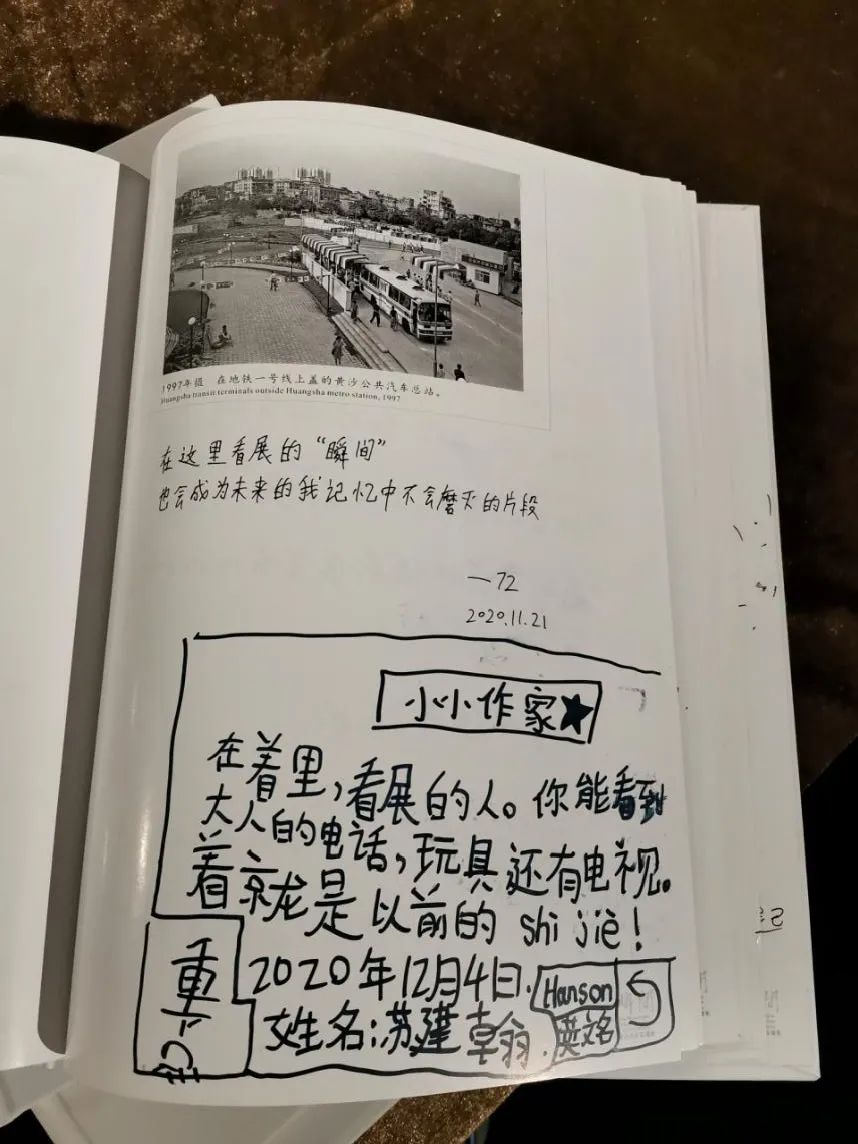 1997年摄 在地铁一号线上盖的黄沙公共汽车总站。
Huangsha transit terminals outside Huangsha metro station, 1997
在这里看展的“瞬间”
也会成为未来的我记忆中不会磨灭的片段
—72
2020.11.21
小小作家★
在着里,看展的人。你能看到
大人的电话,玩具还有电视。
着就是以前的 shi jiè!
2020年12月4日. Hanson
姓名:苏建翰. 英文名
重